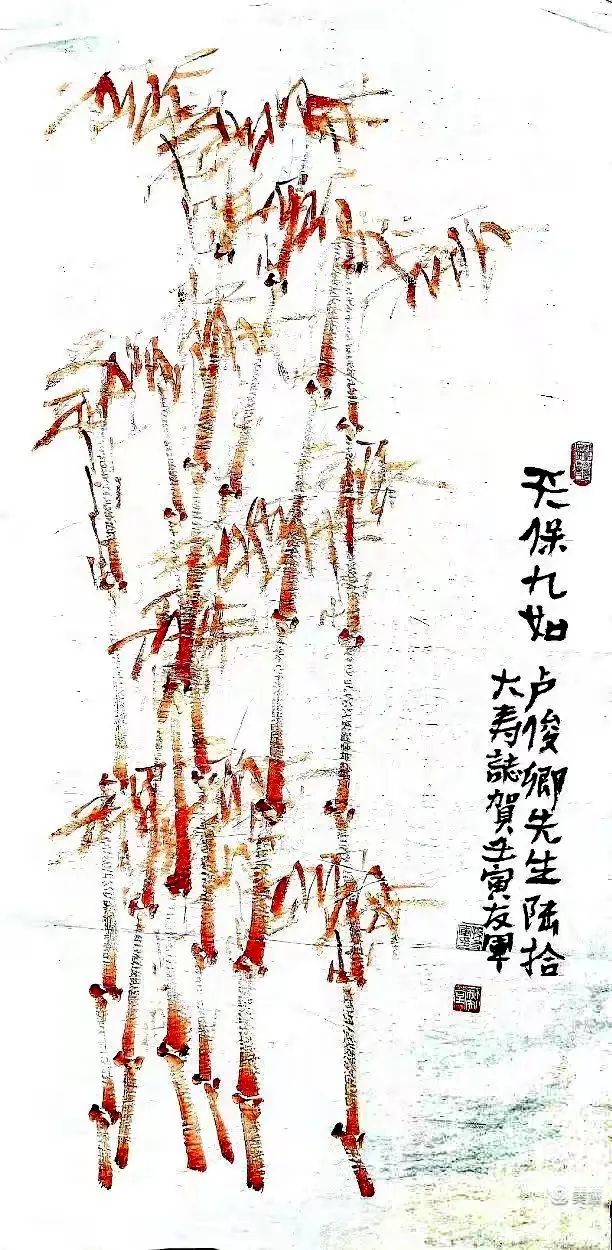 天保九如
卢俊卿先生陆拾
大寿誌贺壬寅友军